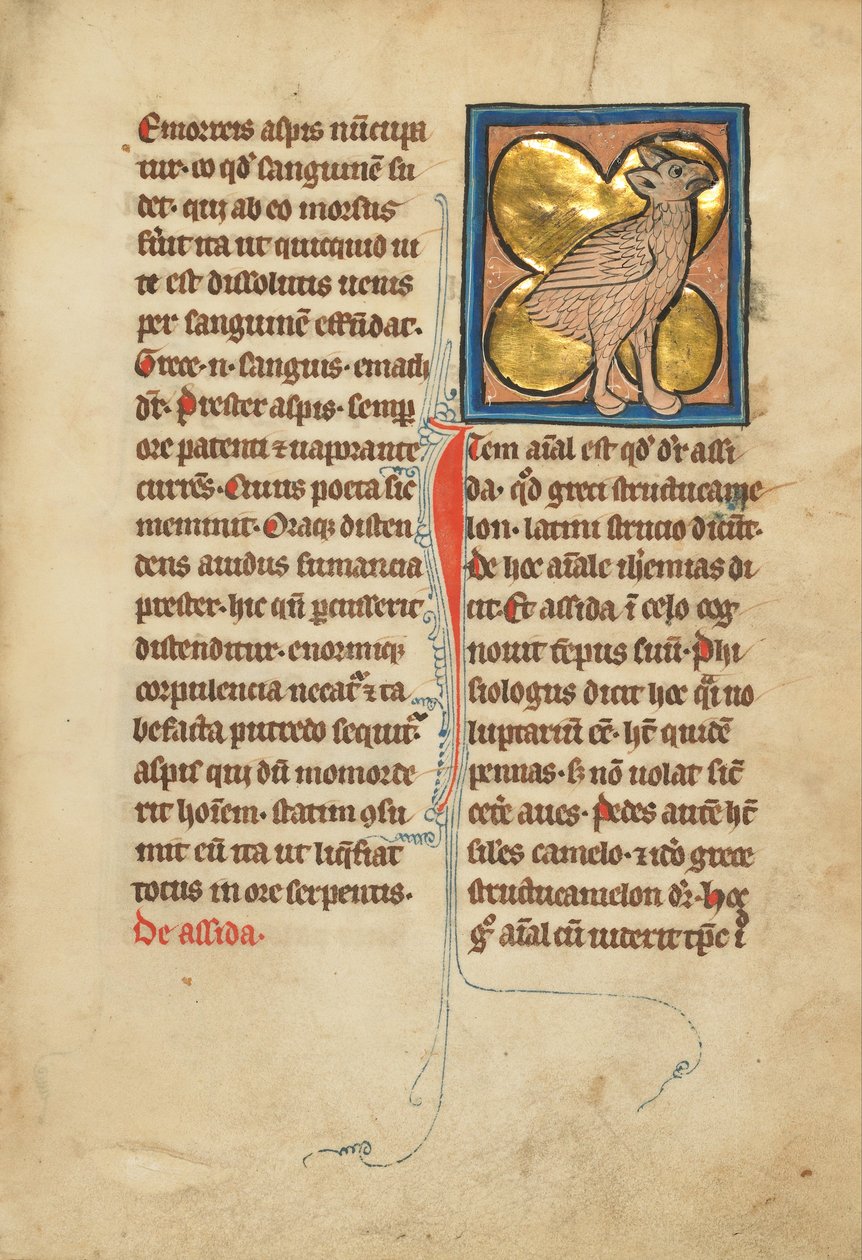 Emorreis aspis nūcupa
tur· eo qd̕ sanguinē su
det· qui ab eo morsus
fu̕it ita ut quicquid ui
te est dissolutis uenis
per sanguinē effūdat·
Grece·n·sanguis·emath
dr̄· Prester aspis· semꝑ
ore patenti ⁊ uaporante
currēs· Cuius poeta sic
meminit· Oraqꝫ disten
dens auidus fumancia
prester· hic qn̄ ꝑcusserit
distenditur· enormiqꝫ
corpulencia necat᷑ ⁊ ta
befacta putredo sequit᷑·
aspis qui dū momorde
rit hoīem· statim ꝯsu
mit eū ita ut liq̄fiat
totus in ore serpentis·
De assida·
Item aīal est qd̕ dr̄ assi
da· qͦd greci structucame
lon· latini structio dicūt·
De hoc aīale ih̕emias di
cit· Et assida ī celo cog
nouit tēpus suū· Phi
siologus dicit hoc qͣi uo
luptariū eē· ht̄ quidē
pennas· sꝫ nō uolat sic̄
cete̕ aues· Pedes autē ht̄
sil̕es camelo· ⁊ id̕o grece
structucamelon dr̄· Hoc
gͦ aīal cū uiderit tp̄c iͦ